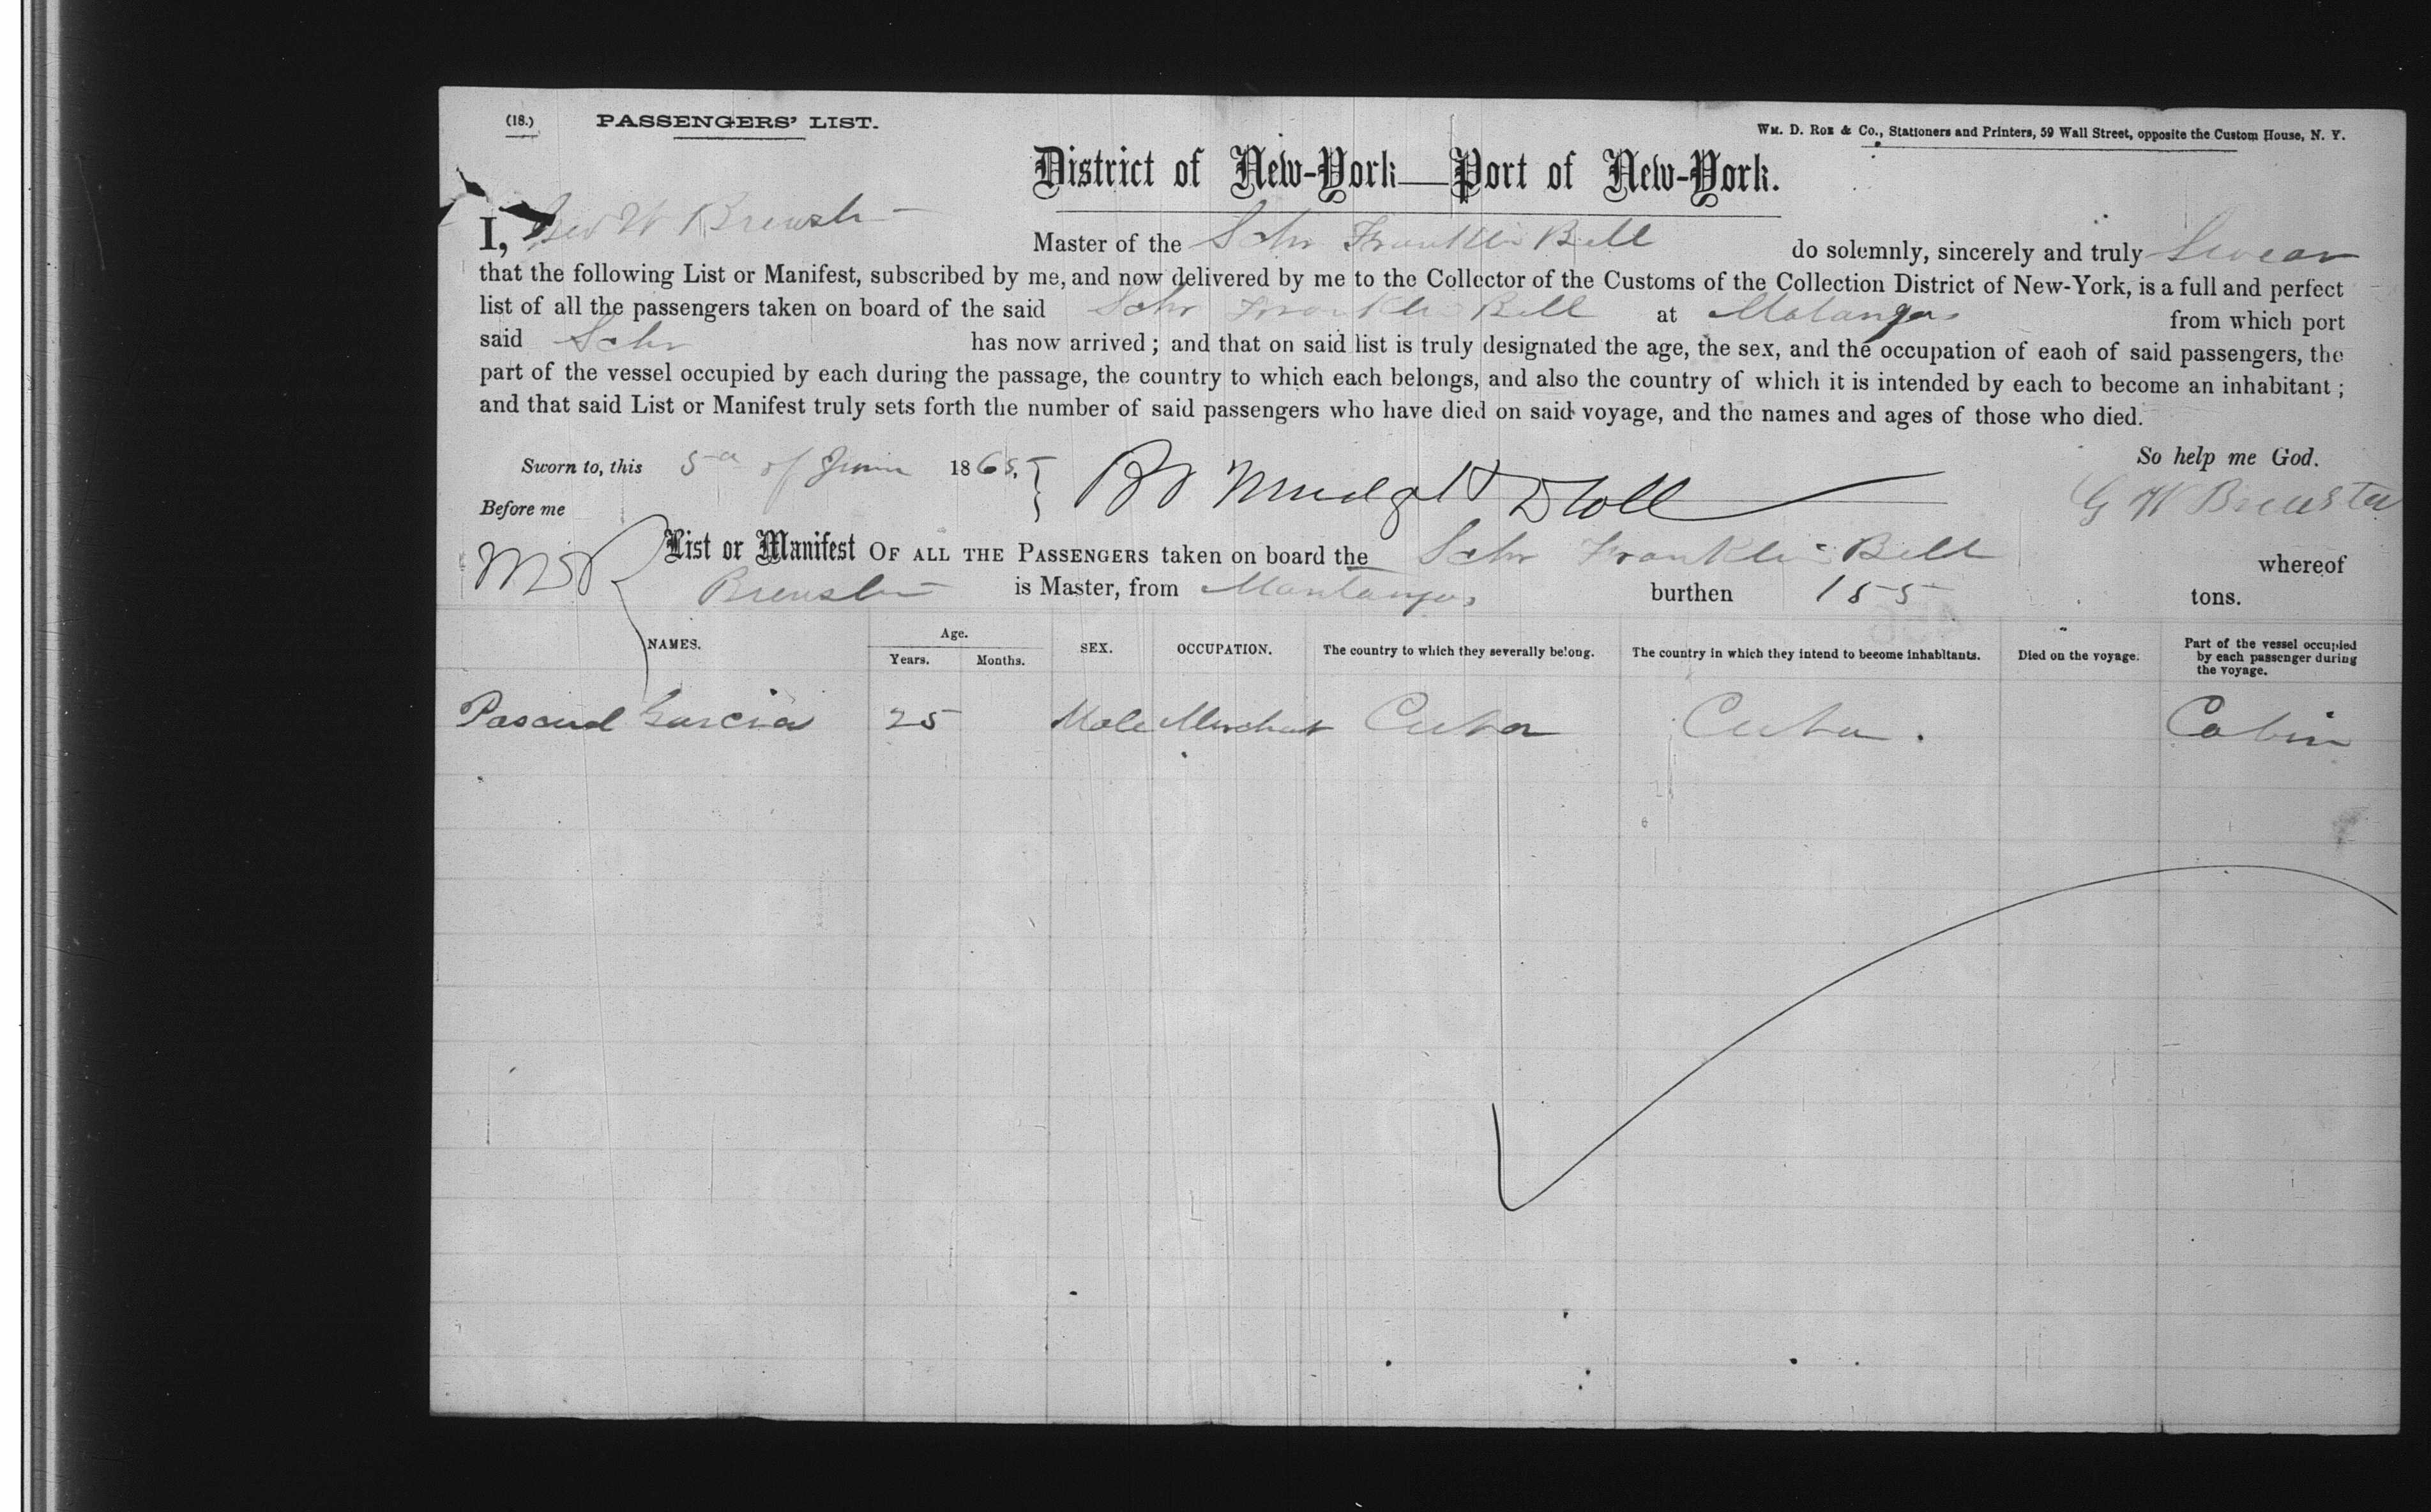 (18.) PASSENGERS' LIST.
Wm. D. Roe & Co., Stationers and Printers, 59 Wall Street, opposite the Custom House, N. Y.
District of New-York—Port of New-York.
I, Geo W Brewster Master of the Schr Franklin Bell do solemnly, sincerely and truly Swear
that the following List or Manifest, subscribed by me, and now delivered by me to the Collector of the Customs of the Collection District of New-York, is a full and perfect
list of all the passengers taken on board of the said Schr Franklin Bell at Matanzas from which port
said Schr has now arrived; and that on said list is truly designated the age, the sex, and the occupation of each of said passengers, the
part of the vessel occupied by each during the passage, the country to which each belongs, and also the country of which it is intended by each to become an inhabitant;
and that said List or Manifest truly sets forth the number of said passengers who have died on said voyage, and the names and ages of those who died.
Sworn to, this 5 of June 1865, So help me God.
Before me D Coll G W Brewster
List or Manifest OF ALL THE PASSENGERS taken on board the Schr Franklin Bell whereof
Brewster is Master, from Mantanzas burthen 155 tons.
NAMES. Age. Years. Months. SEX. OCCUPATION. The country to which they severally belong. The country in which they intend to become inhabitants. Died on the voyage. Part of the vessel occupied by each passenger during the voyage.
Pascual Garcia 25 Male Merchant Cuba Cuba. Cabin